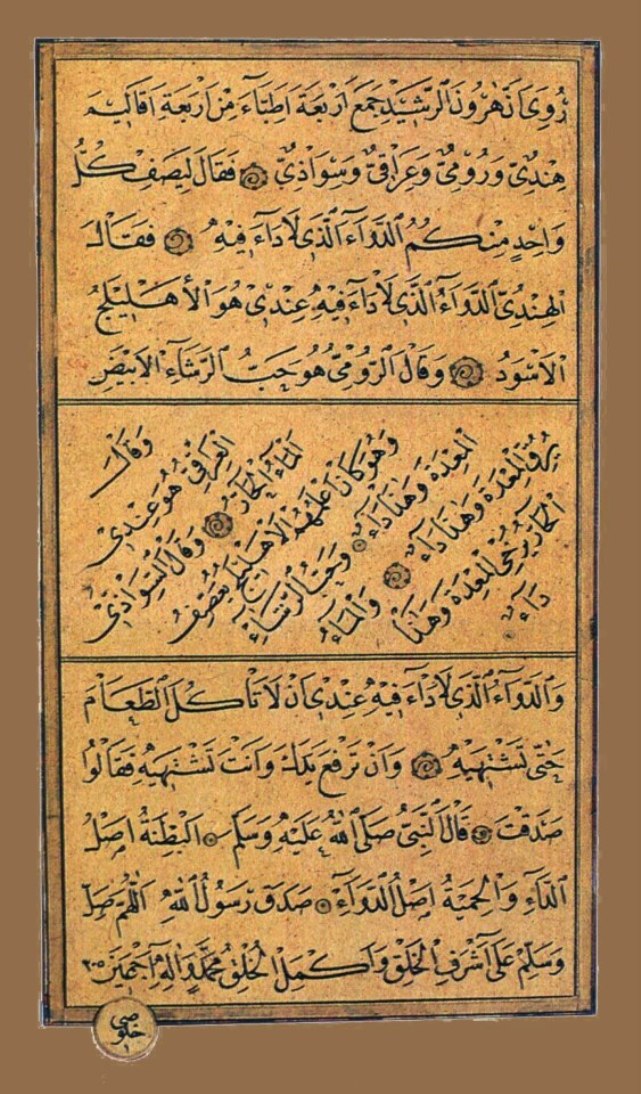 رُوِىَ اَنَّ هٰرُونَ الرَّشِيْدَ جَمَعَ اَرْبَعَةَ اَطِبَّآءَ مِنْ اَرْبَعَةِ اَقَاليمَ
هِنْدِىٌّ وَرُوْمِىٌّ وَعِرَاقِىٌّ وَسَوَاذِىٌّ فَقَالَ لِيَصِفْ كُلُّ
وَاحِدٍ مِنْكُمُ الدَّوَآءَ الَّذِى لَا دَآءَ فِيْهِ فَقَالَ
الْهِنْدِىُّ الدَّوَآءُ الَّذِى لَا دَآءَ فِيْهِ عِنْدِىْ هُوَ الْأَهْلِيْلَجُ
الْاَسْوَدُ وَقَالَ الرُّوْمِىُّ هُوَ حَبُّ الرَّشَآءِ الْاَبْيَضِ
وَقَالَ
الْعِرَاقِىُّ هُوَ عِنْدِىْ
اَلْمَآءُ الْحَآرُّ وَقَالَ السَّوَاذِىُّ
وَهُوَ كَانَ اَعْلَمَهُمْ اَلْاَهْلِيْلَجُ يَعْصِفُ
الْمِعْدَةَ وَهٰذَا دَآءٌ وَحَبُّ الرَّشَآءِ
يُرِقُّ الْمِعْدَةَ وَهٰذَا دَآءٌ وَالْمَآءُ
الْحَآرُّ يُرْخِى الْمِعْدَةَ وَهٰذَا
دَآءٌ
وَالدَّوَآءُ الَّذِى لَا دَآءَ فِيْهِ عِنْدِىْ اَنْ لَا تَأْكُلَ الطَّعَامَ
حَتّٰى تَشْتَهِيَهُ وَاَنْ تَرْفَعَ يَدَكَ وَاَنْتَ تَشْتَهِيْهِ فَقَالُوا
صَدَقْتَ قَالَ النَّبِىُّ صَلَّى اللّٰهُ عَلَيْهِ وَسَلَّمَ اَلْبِطْنَةُ اَصْلُ
الدَّآءِ وَالْحِمْيَةُ اَصْلُ الدَّوَآءِ صَدَقَ رَسُولُ اللّٰهِ اَللّٰهُمَّ صَلِّ
وَسَلِّمْ عَلٰى اَشْرَفِ الْخَلْقِ وَاَكْمَلِ الْخُلْقِ مُحَمَّدٍ وَاٰلِهِ اَجْمَعِيْنَ
خلوصى